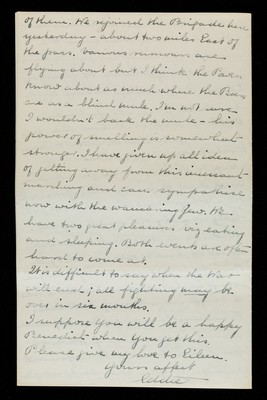 of them. We rejoined the Brigade here
yesterday - about two miles East of
the pass. Various rumours are
flying about but I think the Powers
know about as much where the Boers
are as a blind mule, I'm not sure
I wouldn't back the mule - his
power of smelling is somewhat
stronger. I have given up all idea
of getting away from this incessant
marching and can sympathise
now with the wandering Jew. We
have two great pleasures viz eating
and sleeping. Both events are often
hard to come at.
It is difficult to say when the War
will end; all fighting may be
over in six months.
I suppose you will be a happy
Benedict when you get this.
Please give my love to Eileen.
Yours affect
Eddie